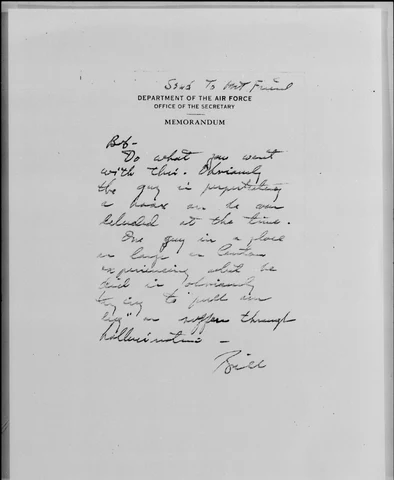 Send To Mrt Friend
DEPARTMENT OF THE AIR FORCE
OFFICE OF THE SECRETARY
MEMORANDUM
Bob-
Do what you want
with this. Obviously
the guy is perpetrating
a hoax or he was
deluded at the time.
One guy in a place
as large as Canton
experiencing what he
said is obviously
trying to "pull our
leg" or suffers through
hallucinations -
Bill